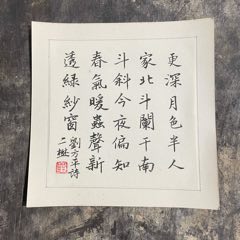 更深月色半人
家北斗闌干南
斗斜今夜偏知
春氣暖蟲聲新
透綠紗窗
劉方平詩